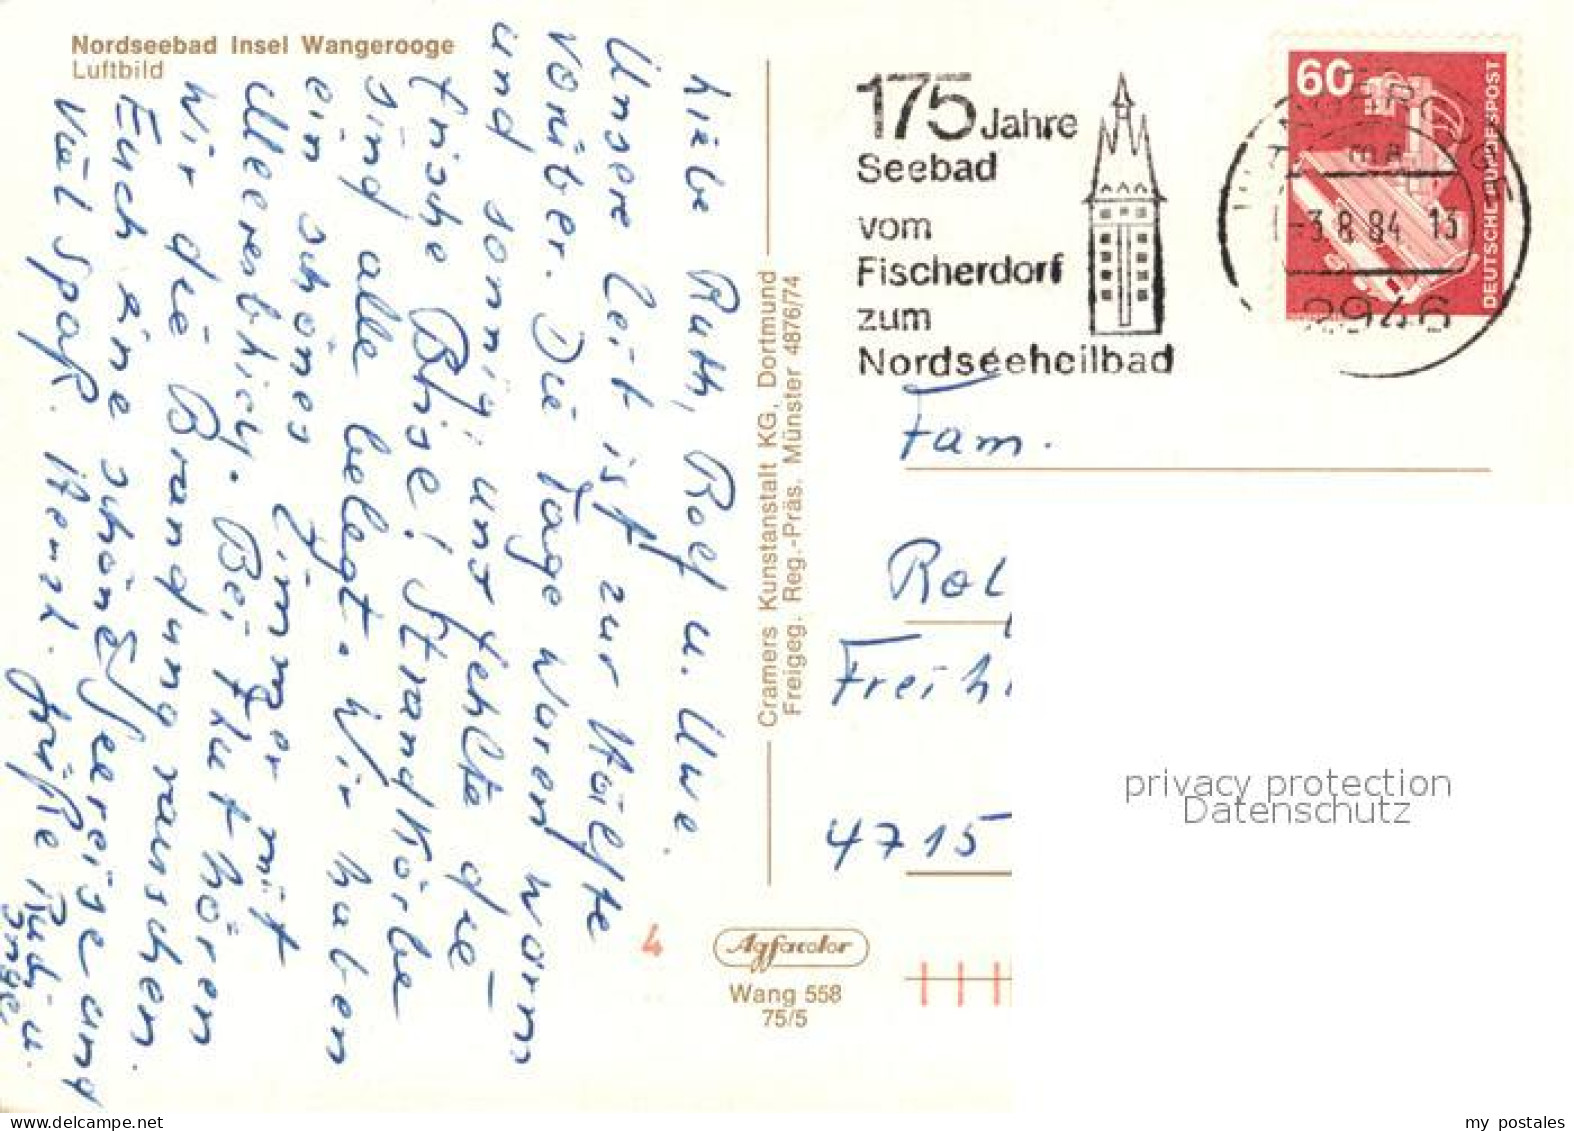 Nordseebad Insel Wangerooge
Luftbild
Liebe Ruth, Rolf u. Uwe.
Unsere Zeit ist zur Hälfte
vorüber. Die Tage waren warm
und sonnig, uns fehlte die
frische Brise! Strandkörbe
sind alle belegt. Wir haben
ein schönes Zimmer mit
Meeresblick. Bei Flut hören
wir die Brandung rauschen.
Euch eine schöne Seereise und
viel Spaß. Herzl. Grüße Rudi u.
Inge
Cramers Kunstanstalt KG, Dortmund
Freigeg. Reg.-Präs. Münster 4876/74
175 Jahre
Seebad
vom
Fischerdorf
zum
Nordseeheilbad
60
DEUTSCHE BUNDESPOST
WANGEROOGE
-3.8.84 13
2946
Fam.
Rol
Freih
4715
4
Agfacolor
Wang 558
75/5
privacy protection
Datenschutz
www.delcampe.net
my_postales